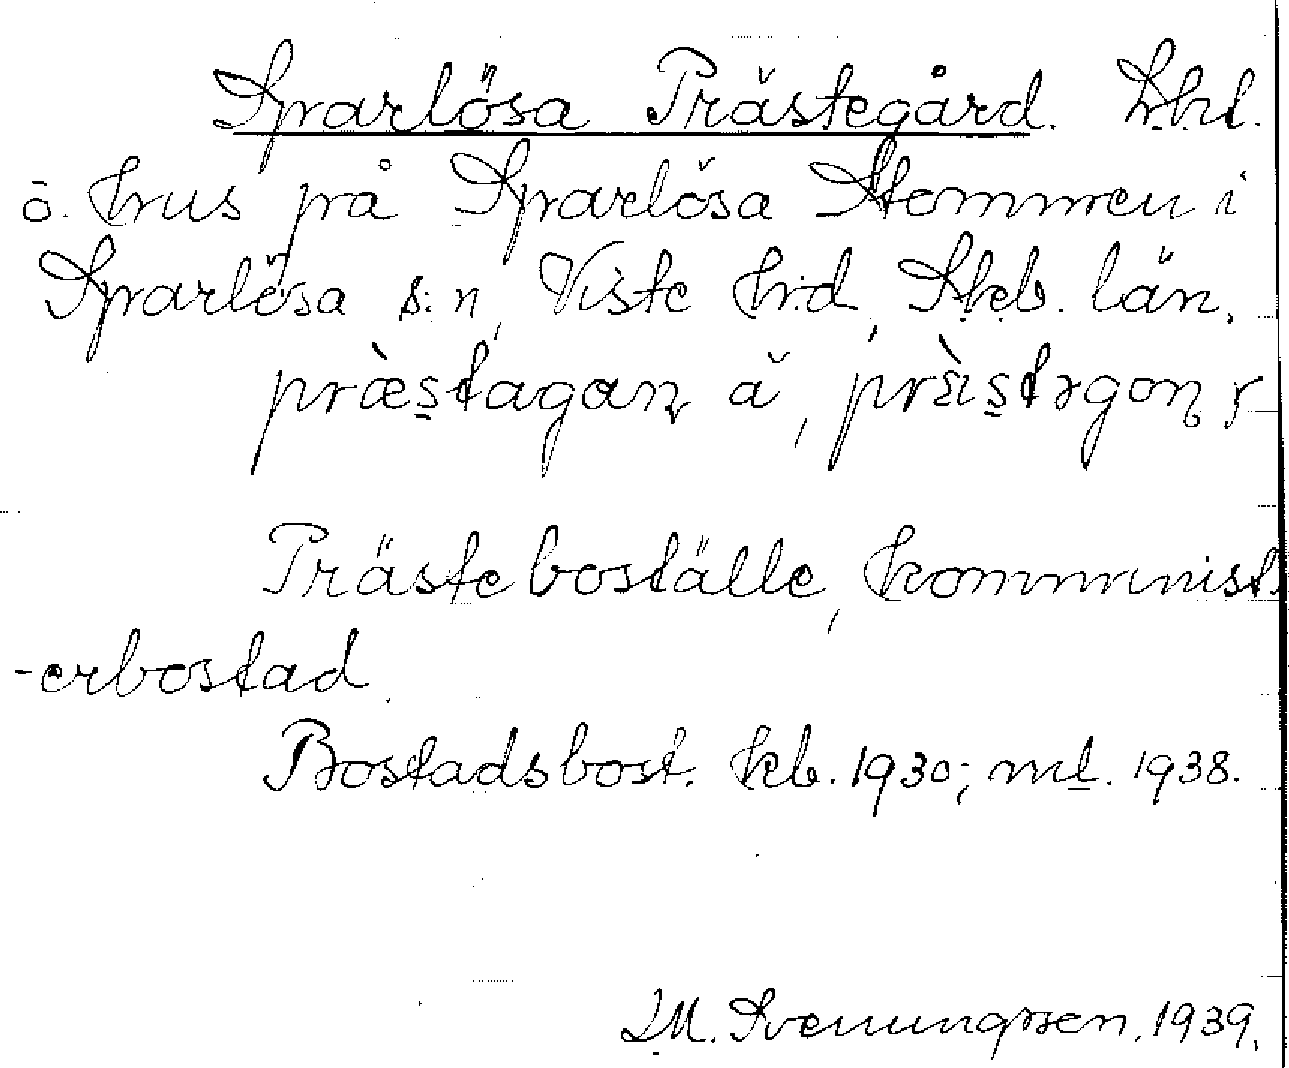 Sparlösa Prästegård. Lhl.
o. hus på Sparlösa Stommen i
Sparlösa s:n, Viste hrd, Skb. län.
præstagaɳ a,
Prästeboställe, komminist
-erbostad.
Bostadsbost. kb. 1930; ml. 1938.
I.M. Svenungsson. 1939.